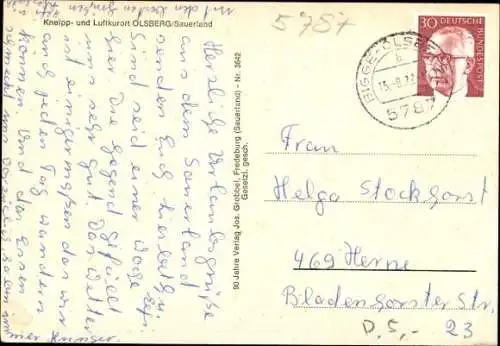 5787
Kneipp- und Luftkurort OLSBERG/Sauerland
Herzliche Urlaubsgrüße
aus dem Sauerland
senden Euch
Sind seid einer Woche
hier. Die Gegend gefällt
uns sehr gut. Das Wetter
ist einigermaßen das wir
auch jeden Tag wandern
können. Und das Essen
schmeckt uns
immer Hunger.
90 Jahre Verlag Jos. Grobbel, Fredeburg (Sauerland) - Nr. 3642
Gesetzl. gesch.
30 DEUTSCHE
BUNDESPOST
BIGGE-OLSBERG
b
5787
Frau
Helga Stockhorst
469 Herne
Bladenhorster Str.
23
D. 5,-